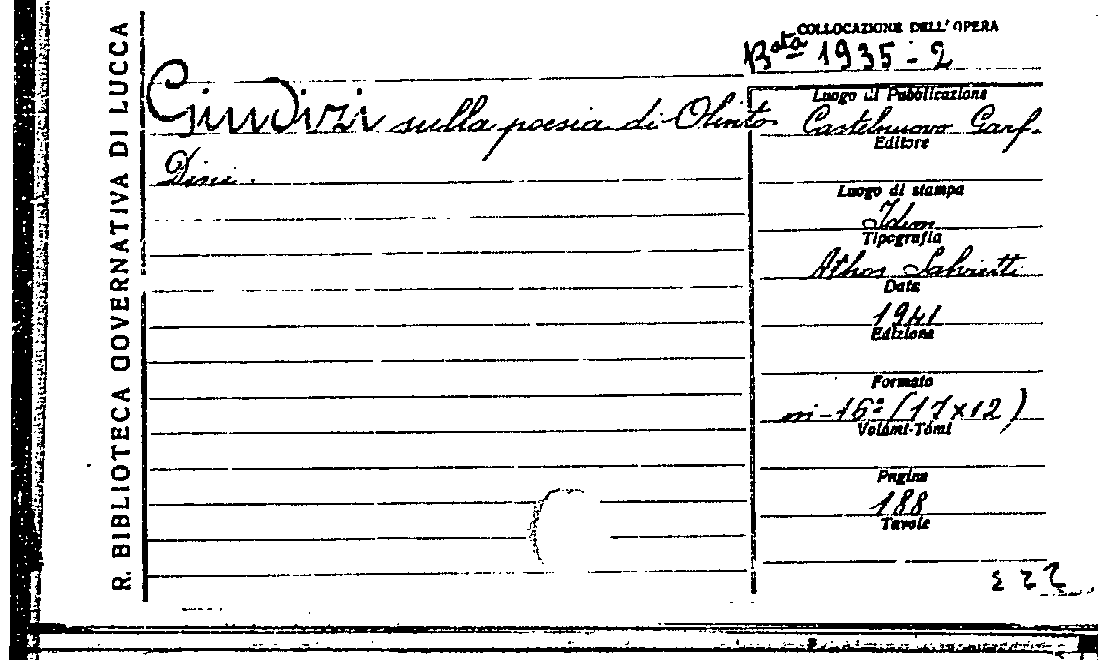 R. BIBLIOTECA GOVERNATIVA DI LUCCA
COLLOCAZIONE DELL'OPERA
B.ta 1935-2
Giudizi sulla poesia di Olinto
Dini.
Luogo di Pubblicazione
Castelnuovo Garf.
Editore
Luogo di stampa
Idem
Tipografia
Athos
Data
1941
Edizione
Formato
in-16º (17x12)
Volumi-Tomi
Pagine
188
Tavole